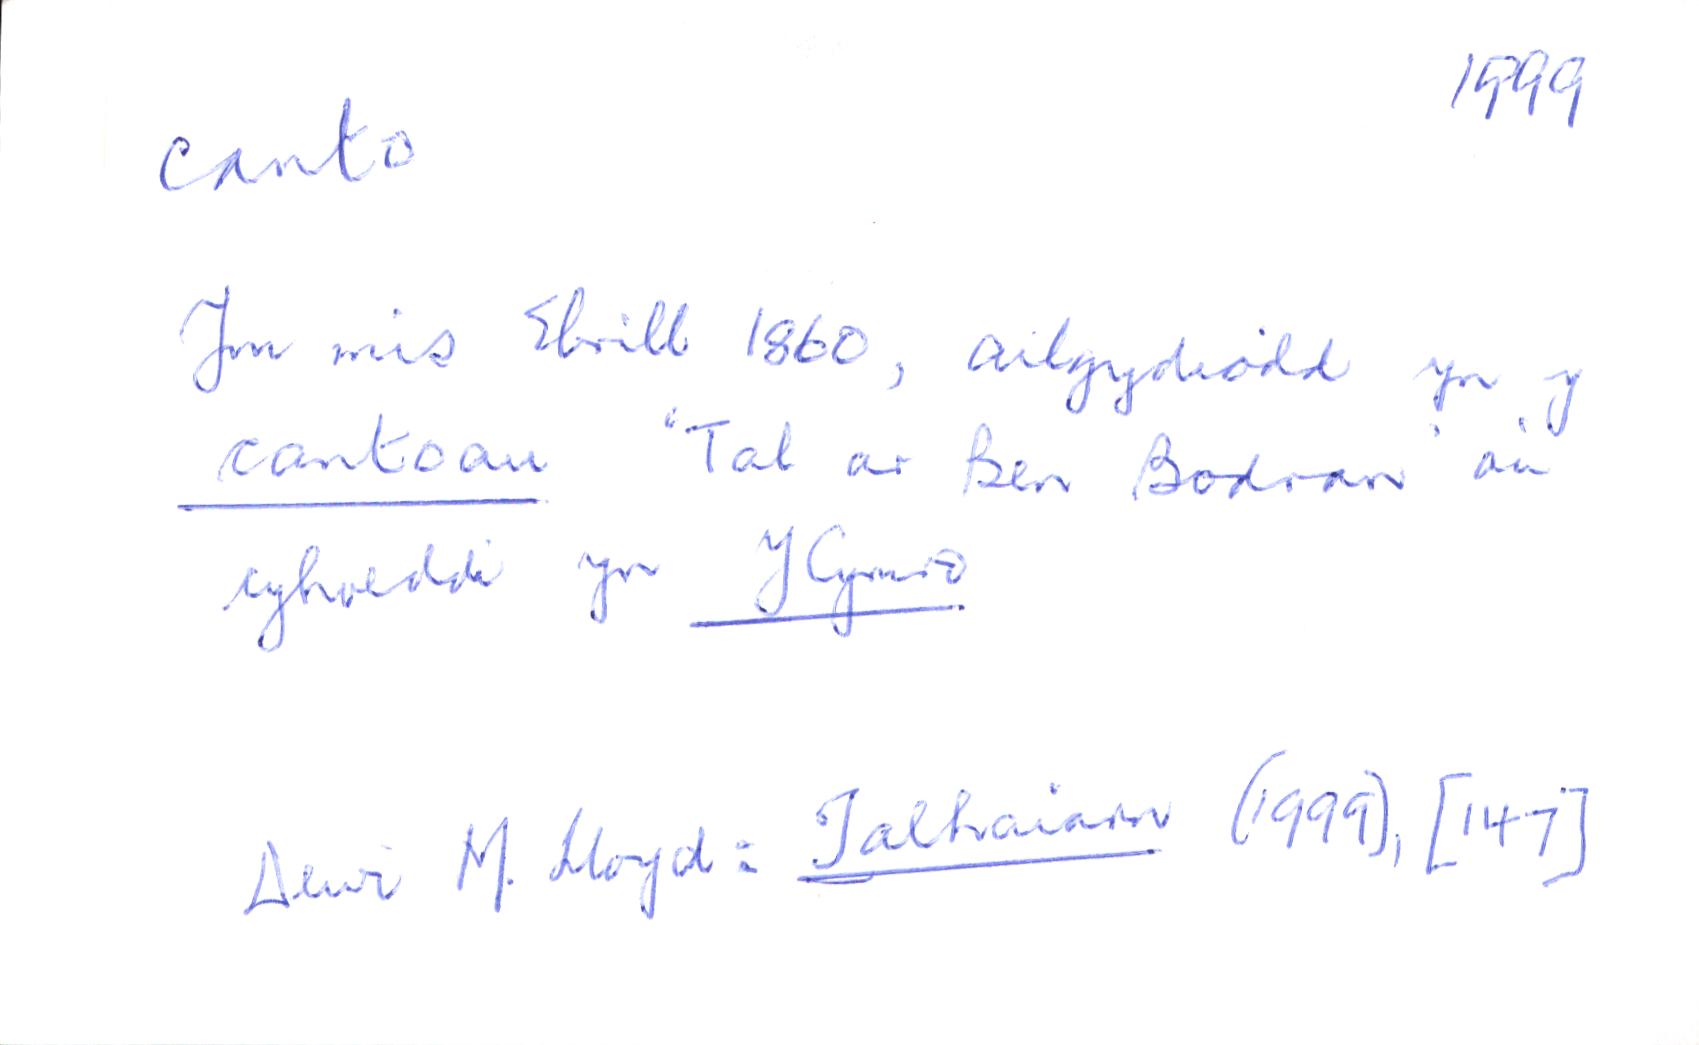 1999
canto
Ym mis Ebrill 1860, ailgydiodd yn y
cantoau 'Tal ar Ben Bodran' a'u
cyhoeddi yn Y Cymro
Dewi M. Lloyd: Talhaiarn (1999), [147]